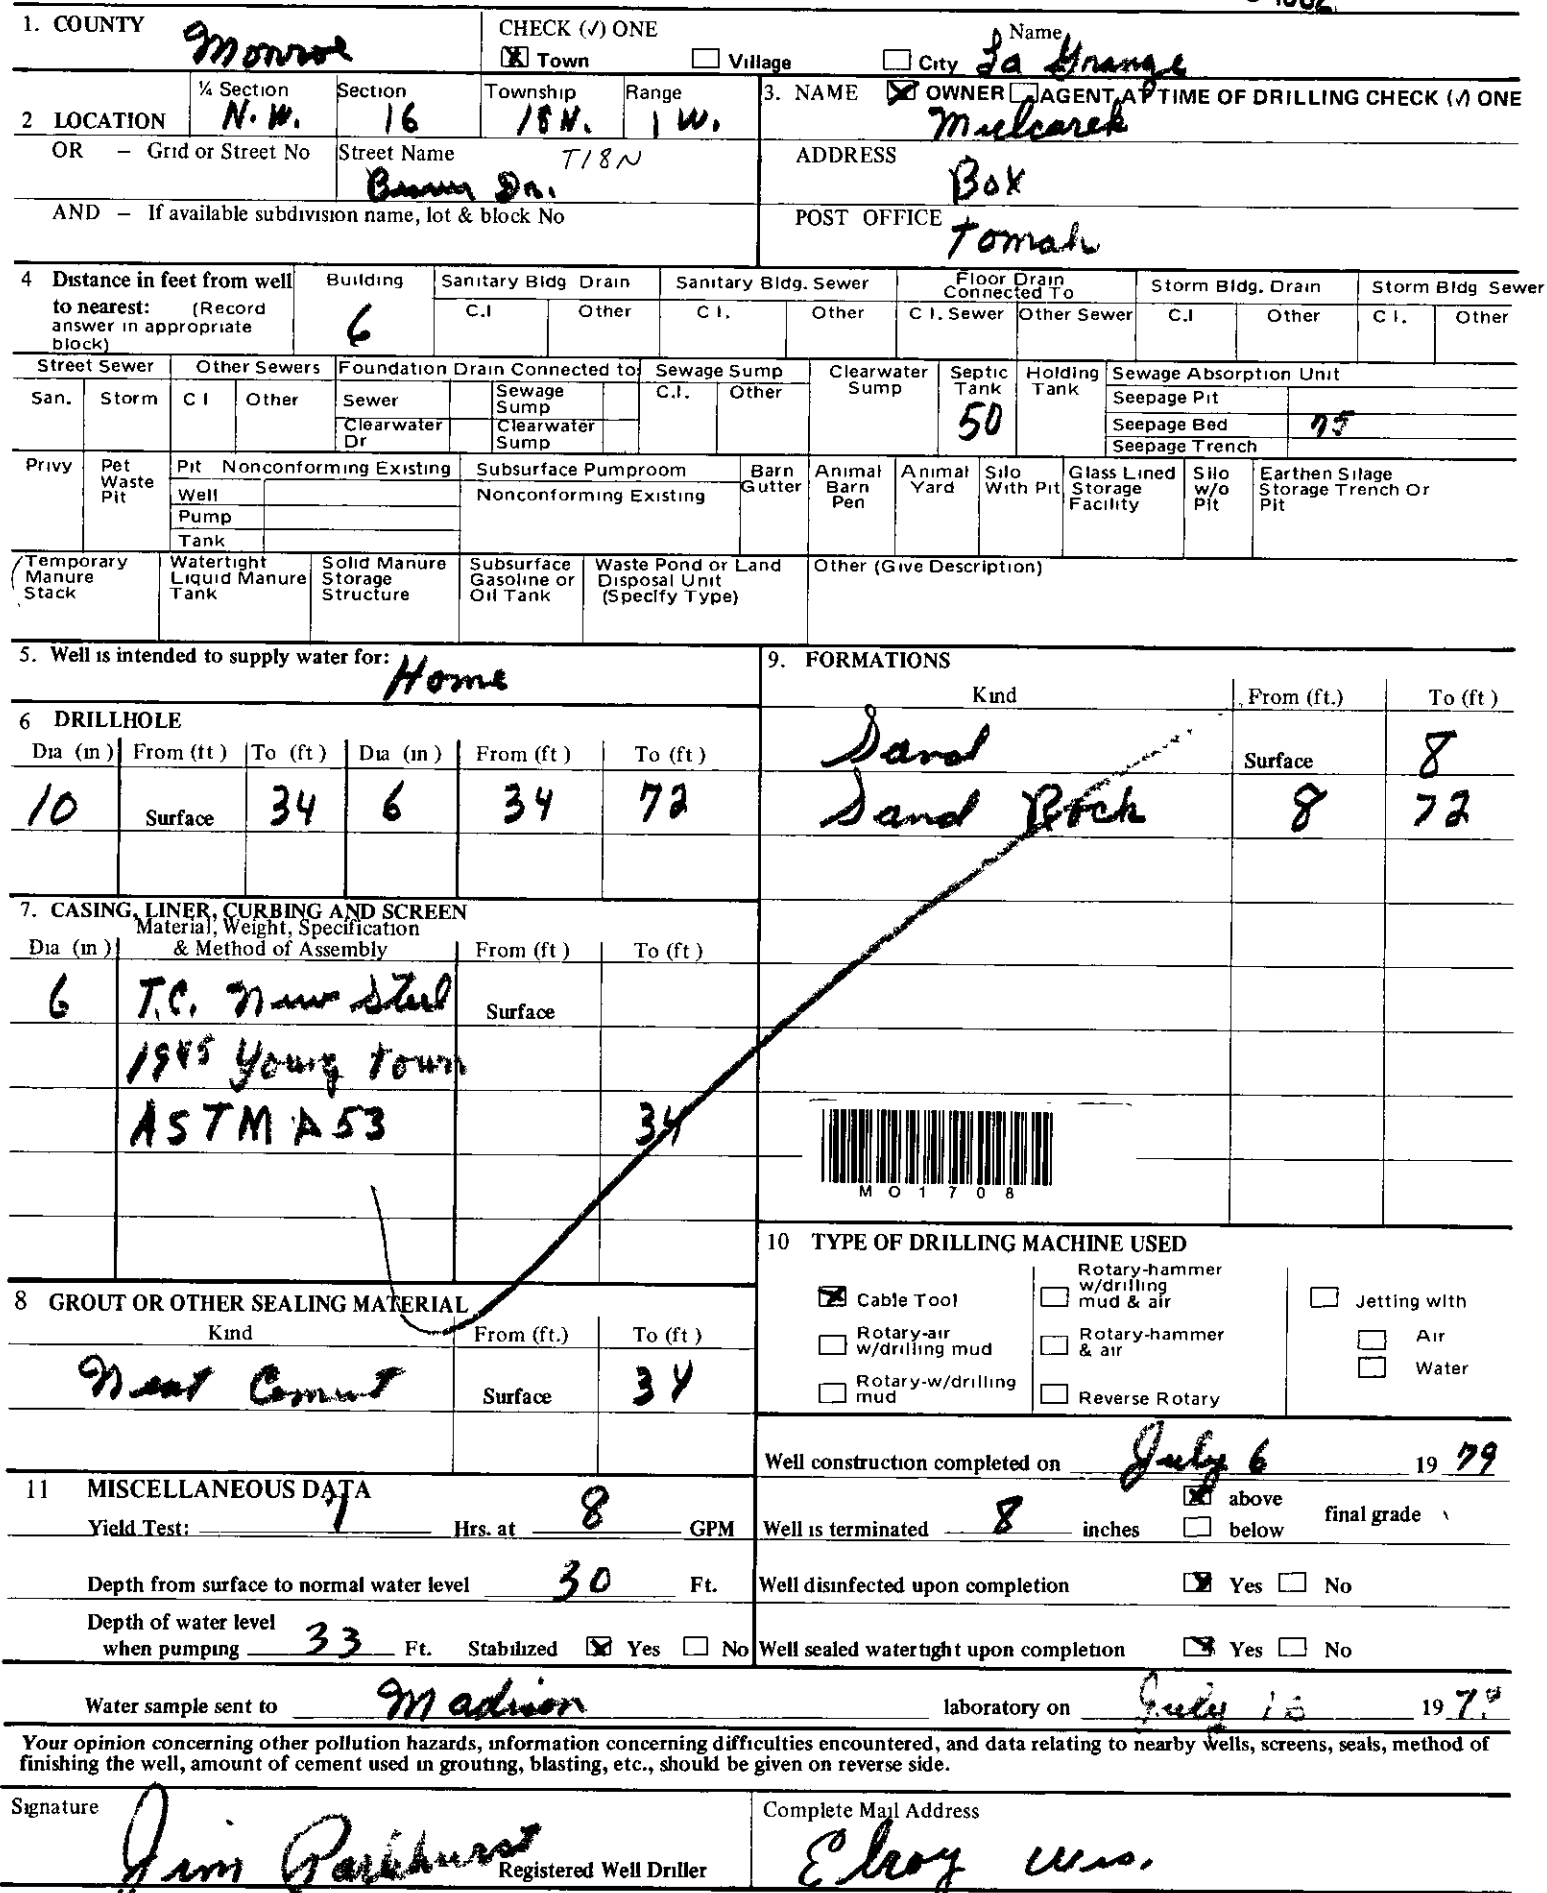 1. COUNTY Monroe CHECK (√) ONE Name
☒ Town ☐ Village ☐ City La Grange
2 LOCATION ¼ Section N.W. Section 16 Township 18 N. Range 1 W.
3. NAME ☒ OWNER ☐ AGENT AT TIME OF DRILLING CHECK (√) ONE
Mulcarek
OR – Grid or Street No Street Name T18N
Dr.
ADDRESS
Box
AND – If available subdivision name, lot & block No
POST OFFICE
Tomah
4 Distance in feet from well to nearest: (Record answer in appropriate block)
Building 6
Sanitary Bldg Drain C.I Other
Sanitary Bldg. Sewer C I. Other
Floor Drain Connected To C I. Sewer Other Sewer
Storm Bldg. Drain C.I Other
Storm Bldg Sewer C I. Other
Street Sewer San. Storm
Other Sewers C I Other
Foundation Drain Connected to
Sewer Sewage Sump
Clearwater Dr Clearwater Sump
Sewage Sump C.I. Other
Clearwater Sump
Septic Tank 50
Holding Tank
Sewage Absorption Unit
Seepage Pit
Seepage Bed 75
Seepage Trench
Privy
Pet Waste Pit
Pit Nonconforming Existing
Well
Pump
Tank
Subsurface Pumproom
Nonconforming Existing
Barn Gutter
Animal Barn Pen
Animal Yard
Silo With Pit
Glass Lined Storage Facility
Silo w/o Pit
Earthen Silage Storage Trench Or Pit
Temporary Manure Stack
Watertight Liquid Manure Tank
Solid Manure Storage Structure
Subsurface Gasoline or Oil Tank
Waste Pond or Land Disposal Unit (Specify Type)
Other (Give Description)
5. Well is intended to supply water for: Home
6 DRILLHOLE
Dia (in) From (ft) To (ft) Dia (in) From (ft) To (ft)
10 Surface 34 6 34 72
7. CASING, LINER, CURBING AND SCREEN
Material, Weight, Specification
Dia (in) & Method of Assembly From (ft) To (ft)
6 T.C. New Steel Surface
Young town
ASTM A53 34
8 GROUT OR OTHER SEALING MATERIAL
Kind From (ft.) To (ft)
Neat Cement Surface 34
9. FORMATIONS
Kind From (ft.) To (ft)
Sand Surface 8
Sand Rock 8 72
MO1708
10 TYPE OF DRILLING MACHINE USED
☒ Cable Tool
☐ Rotary-air w/drilling mud
☐ Rotary-w/drilling mud
☐ Rotary-hammer w/drilling mud & air
☐ Rotary-hammer & air
☐ Reverse Rotary
☐ Jetting with
☐ Air
☐ Water
Well construction completed on July 6 19 79
11 MISCELLANEOUS DATA
Yield Test: 1 Hrs. at 8 GPM
Well is terminated 8 inches ☒ above ☐ below final grade
Depth from surface to normal water level 30 Ft.
Well disinfected upon completion ☒ Yes ☐ No
Depth of water level when pumping 33 Ft. Stabilized ☒ Yes ☐ No
Well sealed watertight upon completion ☒ Yes ☐ No
Water sample sent to Madison laboratory on July 19
Your opinion concerning other pollution hazards, information concerning difficulties encountered, and data relating to nearby wells, screens, seals, method of
finishing the well, amount of cement used in grouting, blasting, etc., should be given on reverse side.
Signature
Jim Parkhurst Registered Well Driller
Complete Mail Address
Elroy Wis.